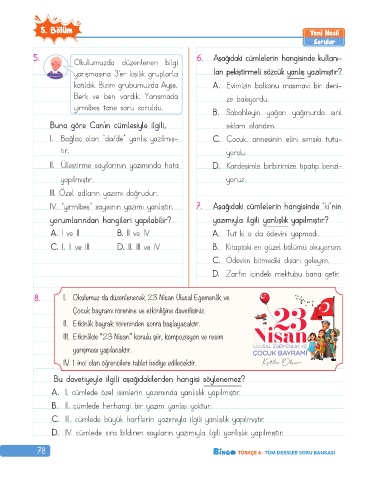 5. Bölüm
Yeni Nesil
Sorular
5.
Okulumuzda düzenlenen bilgi
yarışmasına 3'er kişilik gruplarla
katıldık. Bizim grubumuzda Ayşe,
Berk ve ben vardık. Yarışmada
yirmibeş tane soru soruldu.
Buna göre Can'ın cümlesiyle ilgili,
I. Bağlaç olan "da/de" yanlış yazılmış-
tır.
II. Üleştirme sayılarının yazımında hata
yapılmıştır.
III. Özel adların yazımı doğrudur.
IV. "yirmibeş" sayısının yazımı yanlıştır.
yorumlarından hangileri yapılabilir?
A. I ve II B. II ve IV
C. I, II ve III D. II, III ve IV
6. Aşağıdaki cümlelerin hangisinde kullanı-
lan pekiştirmeli sözcük yanlış yazılmıştır?
A. Evimizin balkonu masmavi bir deni-
ze bakıyordu.
B. Sabahleyin yağan yağmurda sırıl
sıklam ıslandım.
C. Çocuk, annesinin elini sımsıkı tutu-
yordu.
D. Kardeşimle birbirimize tıpatıp benzi-
yoruz.
7. Aşağıdaki cümlelerin hangisinde "ki"nin
yazımıyla ilgili yanlışlık yapılmıştır?
A. Tut ki o da ödevini yapmadı.
B. Kitaptaki en güzel bölümü okuyorum.
C. Ödevim bitmediki dışarı geleyim.
D. Zarfın içindeki mektubu bana getir.
8.
I. Okulumuz da düzenlenecek 23 Nisan Ulusal Egemenlik ve
Çocuk bayramı törenine ve etkinliğine davetlisiniz.
II. Etkinlik bayrak töreninden sonra başlayacaktır.
III. Etkinlikte "23 Nisan" konulu şiir, kompozisyon ve resim
yarışması yapılacaktır.
IV. 1. inci olan öğrencilere tablet hediye edilecektir.
23
Nisan
ULUSAL EGEMENLİK VE
ÇOCUK BAYRAMI
Kutlu Olsun
Bu davetiyeyle ilgili aşağıdakilerden hangisi söylenemez?
A. I. cümlede özel isimlerin yazımında yanlışlık yapılmıştır.
B. II. cümlede herhangi bir yazım yanlışı yoktur.
C. III. cümlede büyük harflerin yazımıyla ilgili yanlışlık yapılmıştır.
D. IV. cümlede sıra bildiren sayıların yazımıyla ilgili yanlışlık yapılmıştır.
78
BİNGO TÜRKÇE 4 - TÜM DERSLER SORU BANKASI